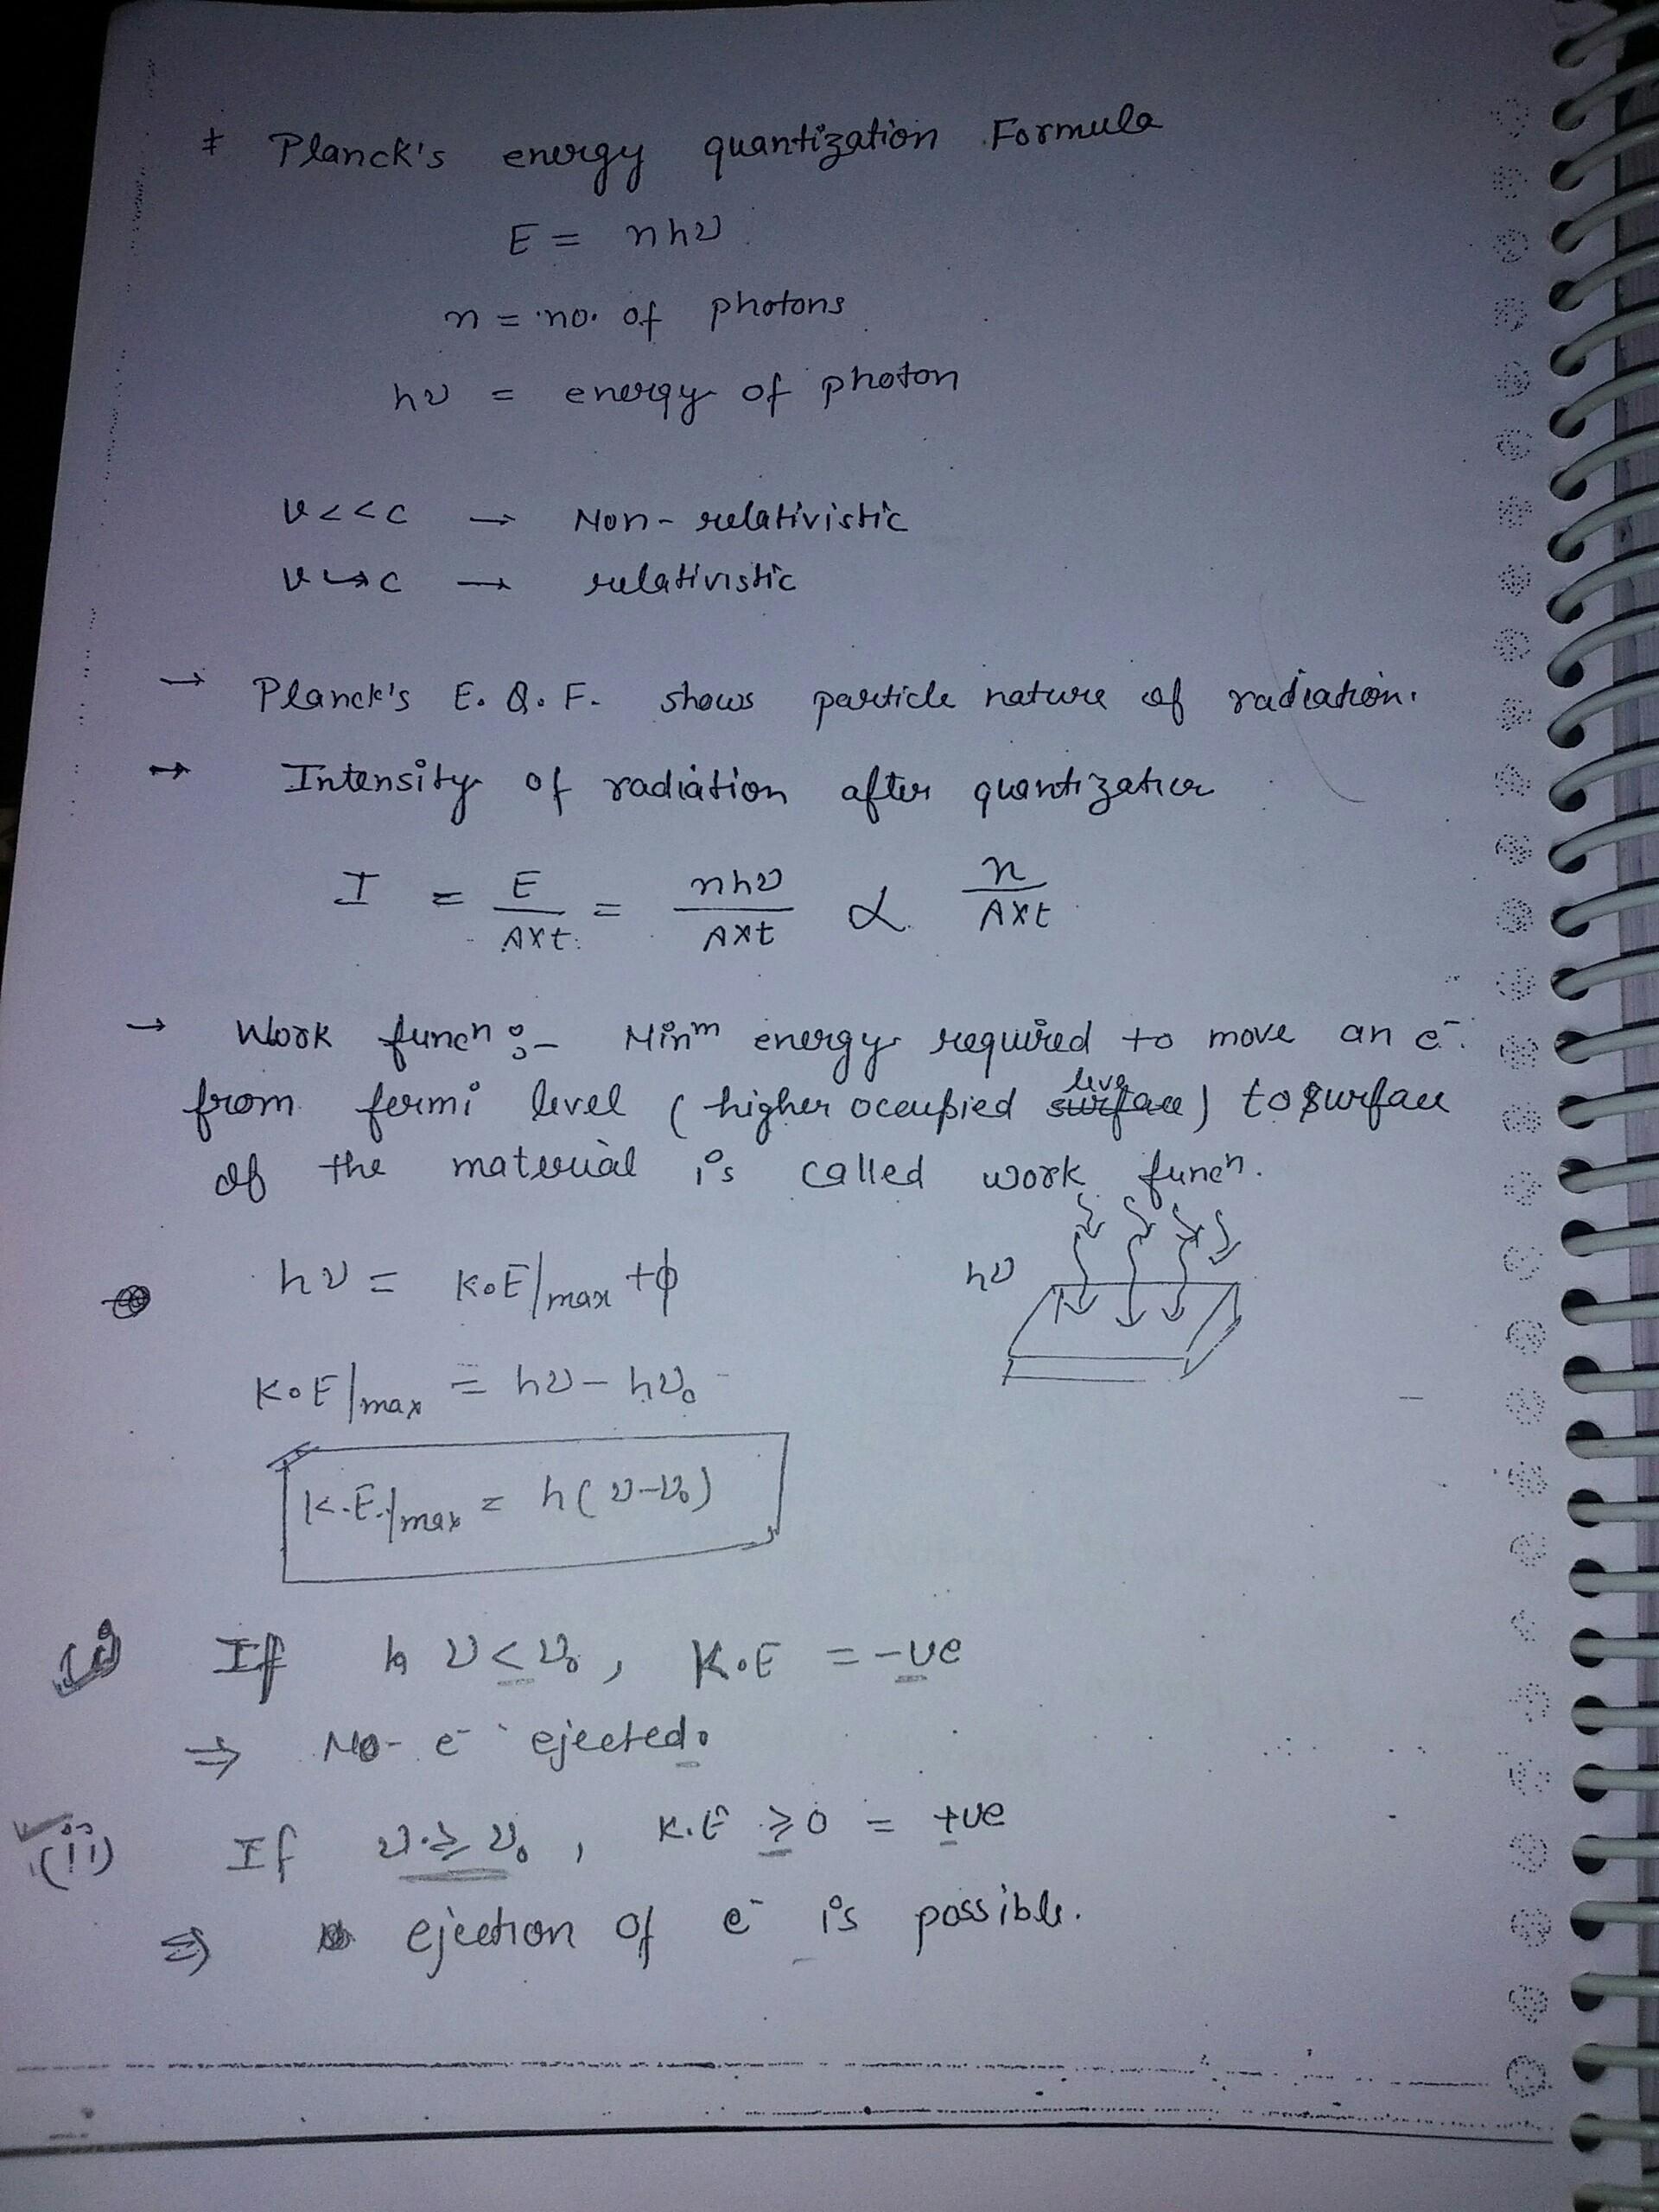 * Planck's energy quantization Formula
E = nhν
n = no. of photons
hν = energy of photon
v << c → Non-relativistic
v → c → relativistic
→ Planck's E.Q.F. shows particle nature of radiation.
→ Intensity of radiation after quantization
I = E/(A×t) = nhν/(A×t) ∝ n/(A×t)
→ Work funcn :- Minm energy required to move an e-
from fermi level (higher occupied level surface) to surface
of the material is called work funcn.
hν = K.E|max + ϕ
hν
K.E|max = hν - hν₀
K.E.|max = h(ν-ν₀)
(i) If ν < ν₀, K.E = -ve
⇒ No e- ejected.
(ii) If ν ≥ ν₀, K.E ≥ 0 = +ve
⇒ ejection of e- is possible.